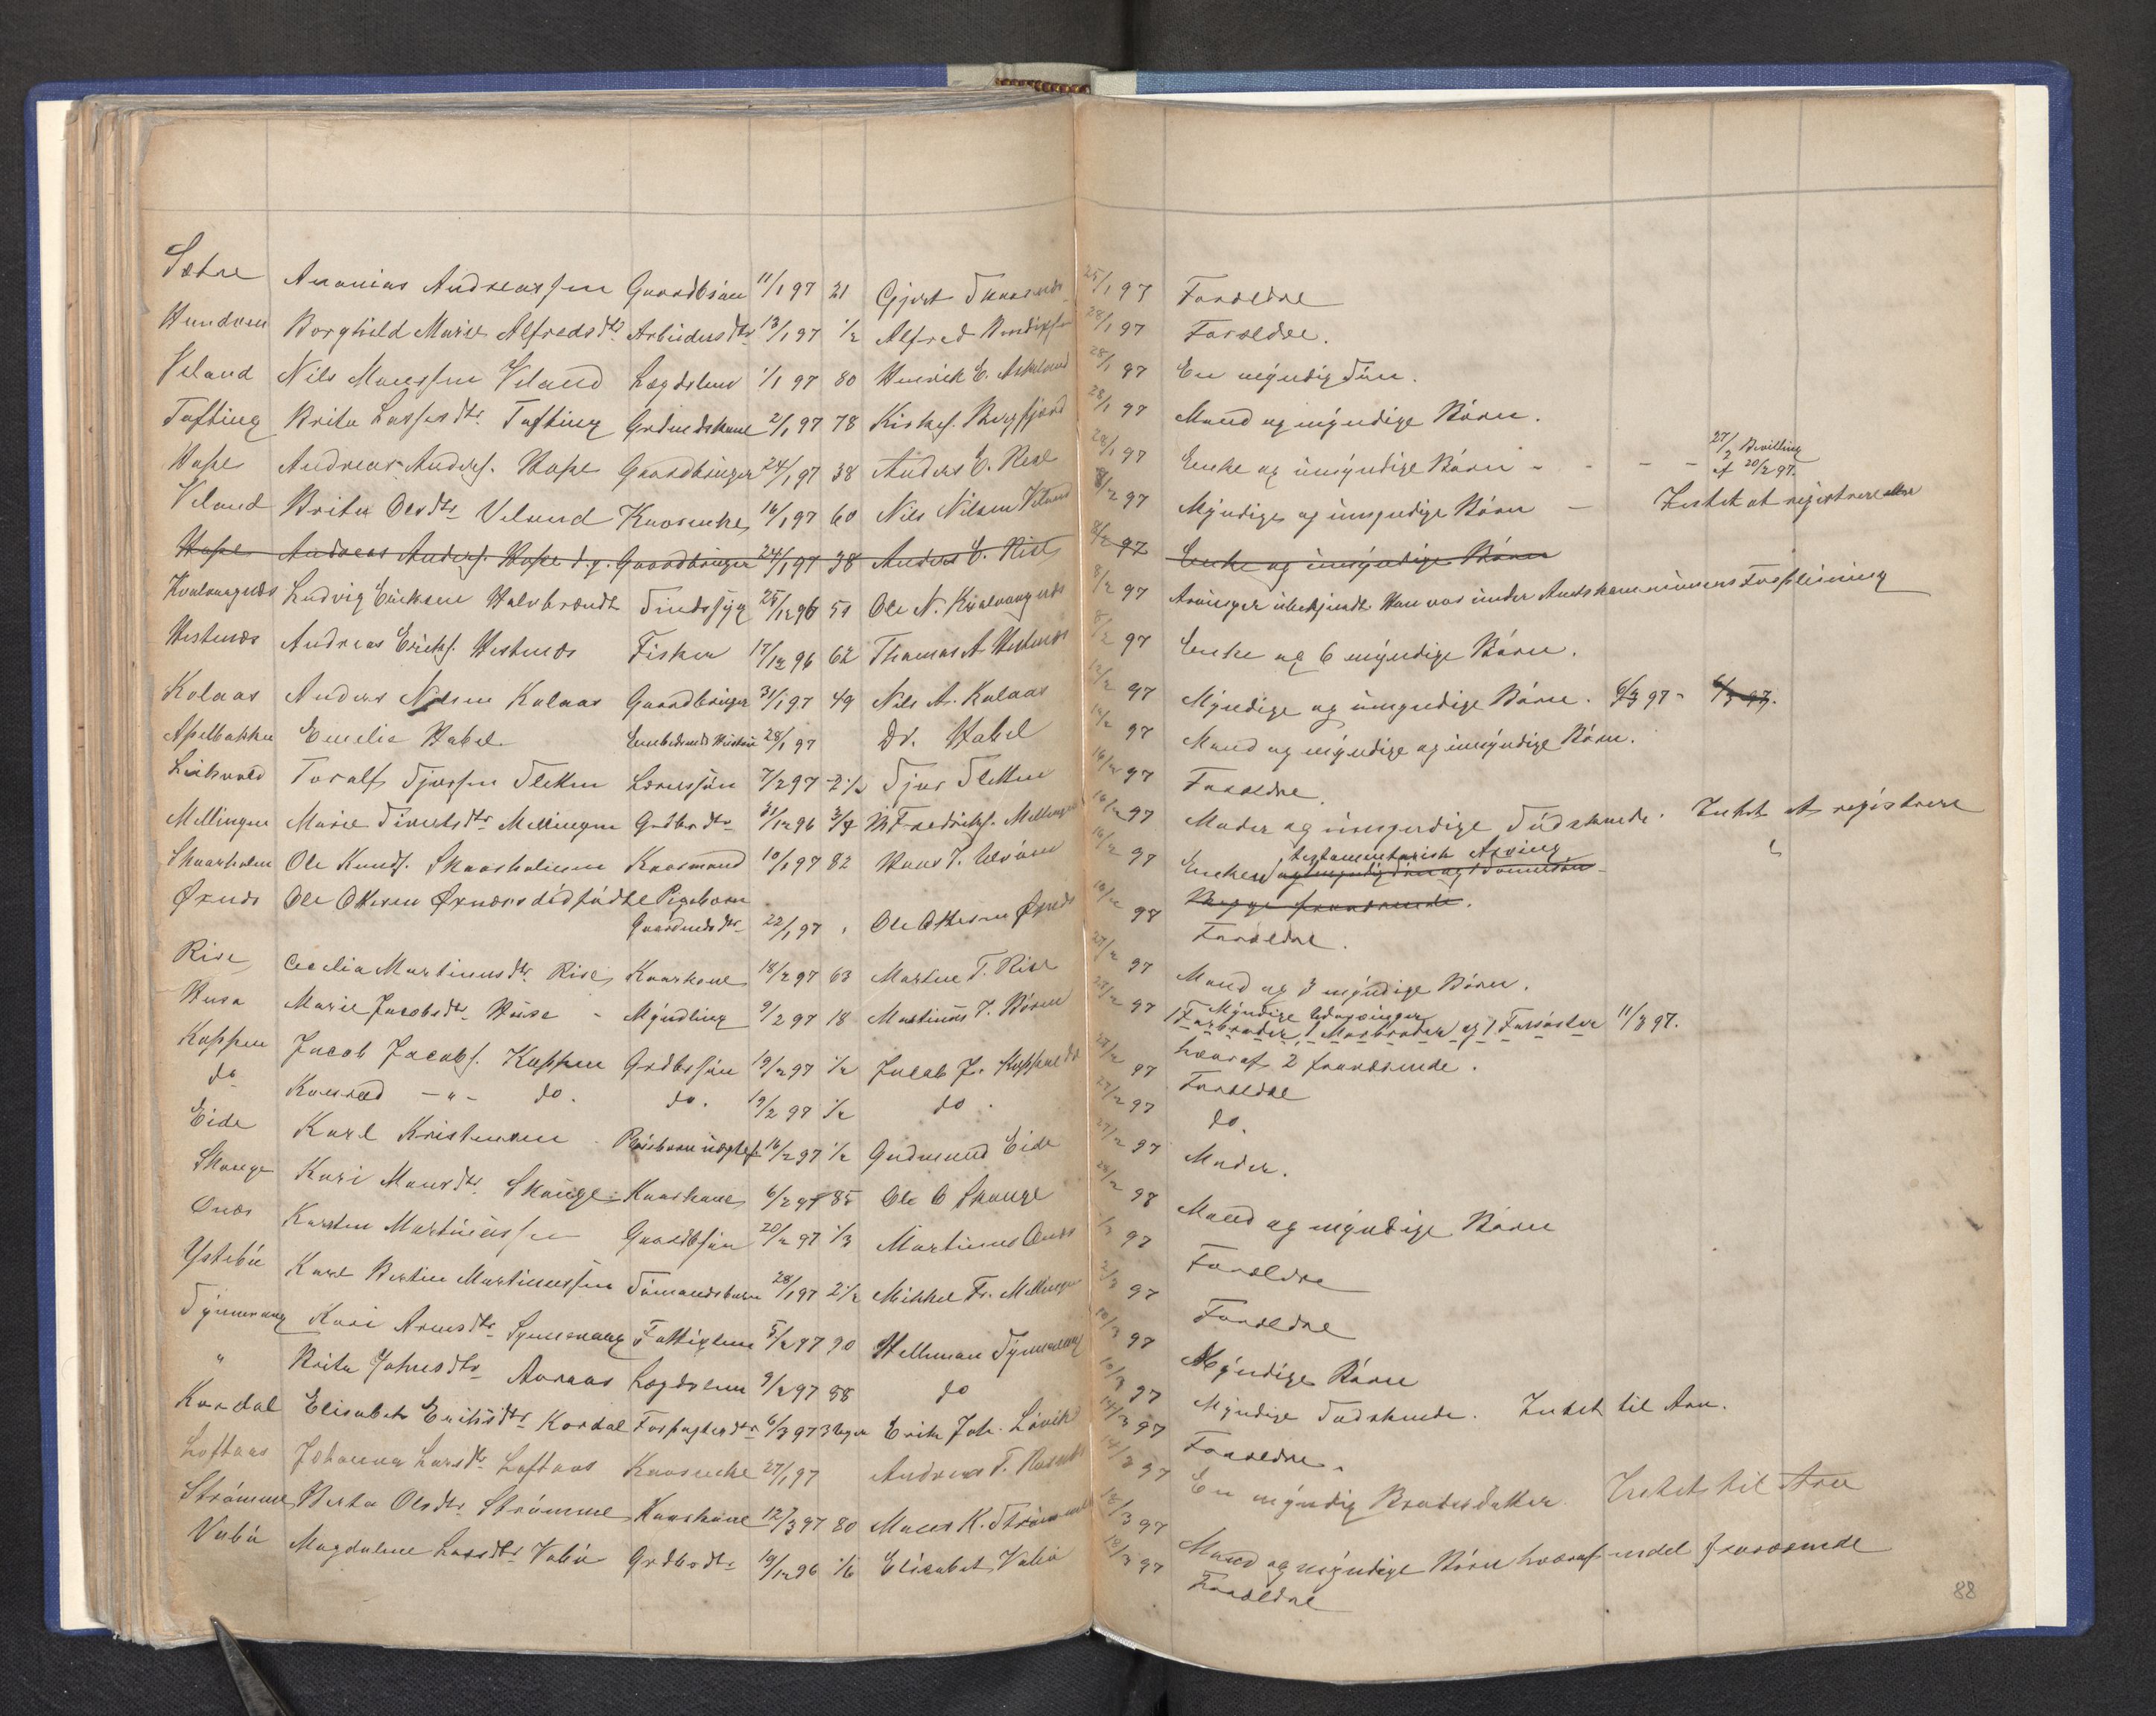 Sætre Ananias Andreassen Gaardbsøn 11/1 97 21 Gjert 25/1 97 Forældre
Hundven Borghild Marie Alfredsdtr Arbeidersdtr 13/1 97 1/2 Alfred Bendixsen 28/1 97 Forældre.
Veland Nils Monssen Veland Lægdslem 1/1 97 80 Henrik E. Askeland 28/1 97 En myndig Søn.
Tofting Brita Lassesdtr. Tofting Grdmdskone 2/1 97 78 Kirkes. Bergfjord 28/1 97 Mand og myndige Børn.
Hope Andreas Anders. Hope Gaardbruger 24/1 97 38 Anders E. Rise 28/1 97 Enke og umyndige Børn - - - - 27/2 Bevilling af 20/2 97.
Veland Brita Olsdtr Veland Kaarenke 16/1 97 60 Nils Nilsen Veland 8/2 97 Myndige og umyndige Børn - Intet at registrere
Hope Andreas Anders. Hope d.y. Gaardbruger 24/1 97 38 Anders E. Rise 8/2 97 Enke og umyndige Børn
Kvalvaagnæs Ludvig Eriksen Halvbrændt Sindssyg 25/12 96 51 Ole N. Kvalvaagnæs 8/2 97 Arvinger ubekjendt. Han var under Amtskommunens Forpleining
Vestnæs Andreas Eriks. Vestnæs Fisker 17/12 96 62 Thomas A Vestnæs 8/2 97 Enke og 6 myndige Børn.
Kolaas Anders Nilsen Kolaas Gaardbruger 31/1 97 49 Nils A. Kolaas 12/2 97 Myndige og umyndige Børn. 6/3 97 - 6/3 97.
Apelbakken Emelie Habel Embedsmds Hustru 28/1 97 Dr. Habel 12/2 97 Mand og myndige og umyndige Børn.
Toralf Sjursen Sletten Lærersøn 7/2 97 2 1/2 Sjur Sletten 16/2 97 Forældre.
Mellingen Marie Sivertsdtr Mellingen Grdbrdtr 31/12 96 3/4 Fredriks. Mellingen 16/2 97 Moder og umyndige Sødskende. Intet at registrere
Skaarholm Ole Knuds. Skaarholmen Kaarmand 10/1 97 82 Hans J. Ulvøen 16/2 97 Enken testamentarisk Arving
Øxnæs Ole Ottesen Øxnæs dødfødte Pigebarn
Gaardmdsdtr 22/1 97 Ole Ottesen Øxnæs 16/2 98 Forældre.
Rise Cecilia Martinusdtr. Rise Kaarkone 18/2 97 63 Martin T. Rise 27/2 97 Mand og 3 myndige Børn.
Husa Marie Jacobsdtr. Huse - Myndling 9/2 97 18 Martinus T. Børen 27/2 97 Myndige Udarvinger
1 Farbroder, 1 Morbroder og 1 Farsøster 11/3 97.
hvoraf 2 fraværende.
Koppen Jacob Jacobs. Koppen Grdbrsøn 19/2 97 1/2 Jacob J. Koppen 27/2 97 Forældre
do Konrad - " - do. do. 19/2 97 1/2 do. 27/2 97 do.
Eide Karl Kristensen 16/2 97 1/2 Gudmund Eide 27/2 97 Moder.
Skauge Kari Monsdtr. Skauge Kaarkone 6/2 97 85 Ole O Skauge 28/2 98 Mand og myndige Børn
Onæs Karsten Martinussen Gaardbsøn 20/2 97 1/3 Martinus Onæs 97 Forældre
Ystebø Karl Bertin Martinussen Sømandsbarn 28/1 97 2 1/2 Mikkel Fr. Mellingen 2/3 97 Forældre
Synnevaag Kari Arnesdtr. Synnevaag Fattiglem 5/2 97 90 Hellman Synnevaag 10/3 97 Myndige Børn
" Brita Johnsdtr Aaraas Lægdslem 9/2 97 88 do 10/3 97 Myndige Sødskende. Intet til Arv.
Kordal Elisabet Eriksdtr. Kordal Forpagterdtr 6/3 97 3 Uger Erik Joh. Løvik 14/3 97 Forældre.
Loftaas Johanna Larsdtr. Loftaas Kaarenke 27/1 97 Andreas T. 14/3 97 En myndig Broderdatter. Intet til Arv
Strømme Berta Olsdtr. Strømme Kaarkone 12/3 97 80 Mons K. Strømme 18/3 97 Mand og myndige Børn hvoraf endel fraværende
Vabø Magdalene Larsdtr Vabø Grdbrdtr 19/12 96 1/6 Elisabet Vabø 18/3 97 Forældre
88